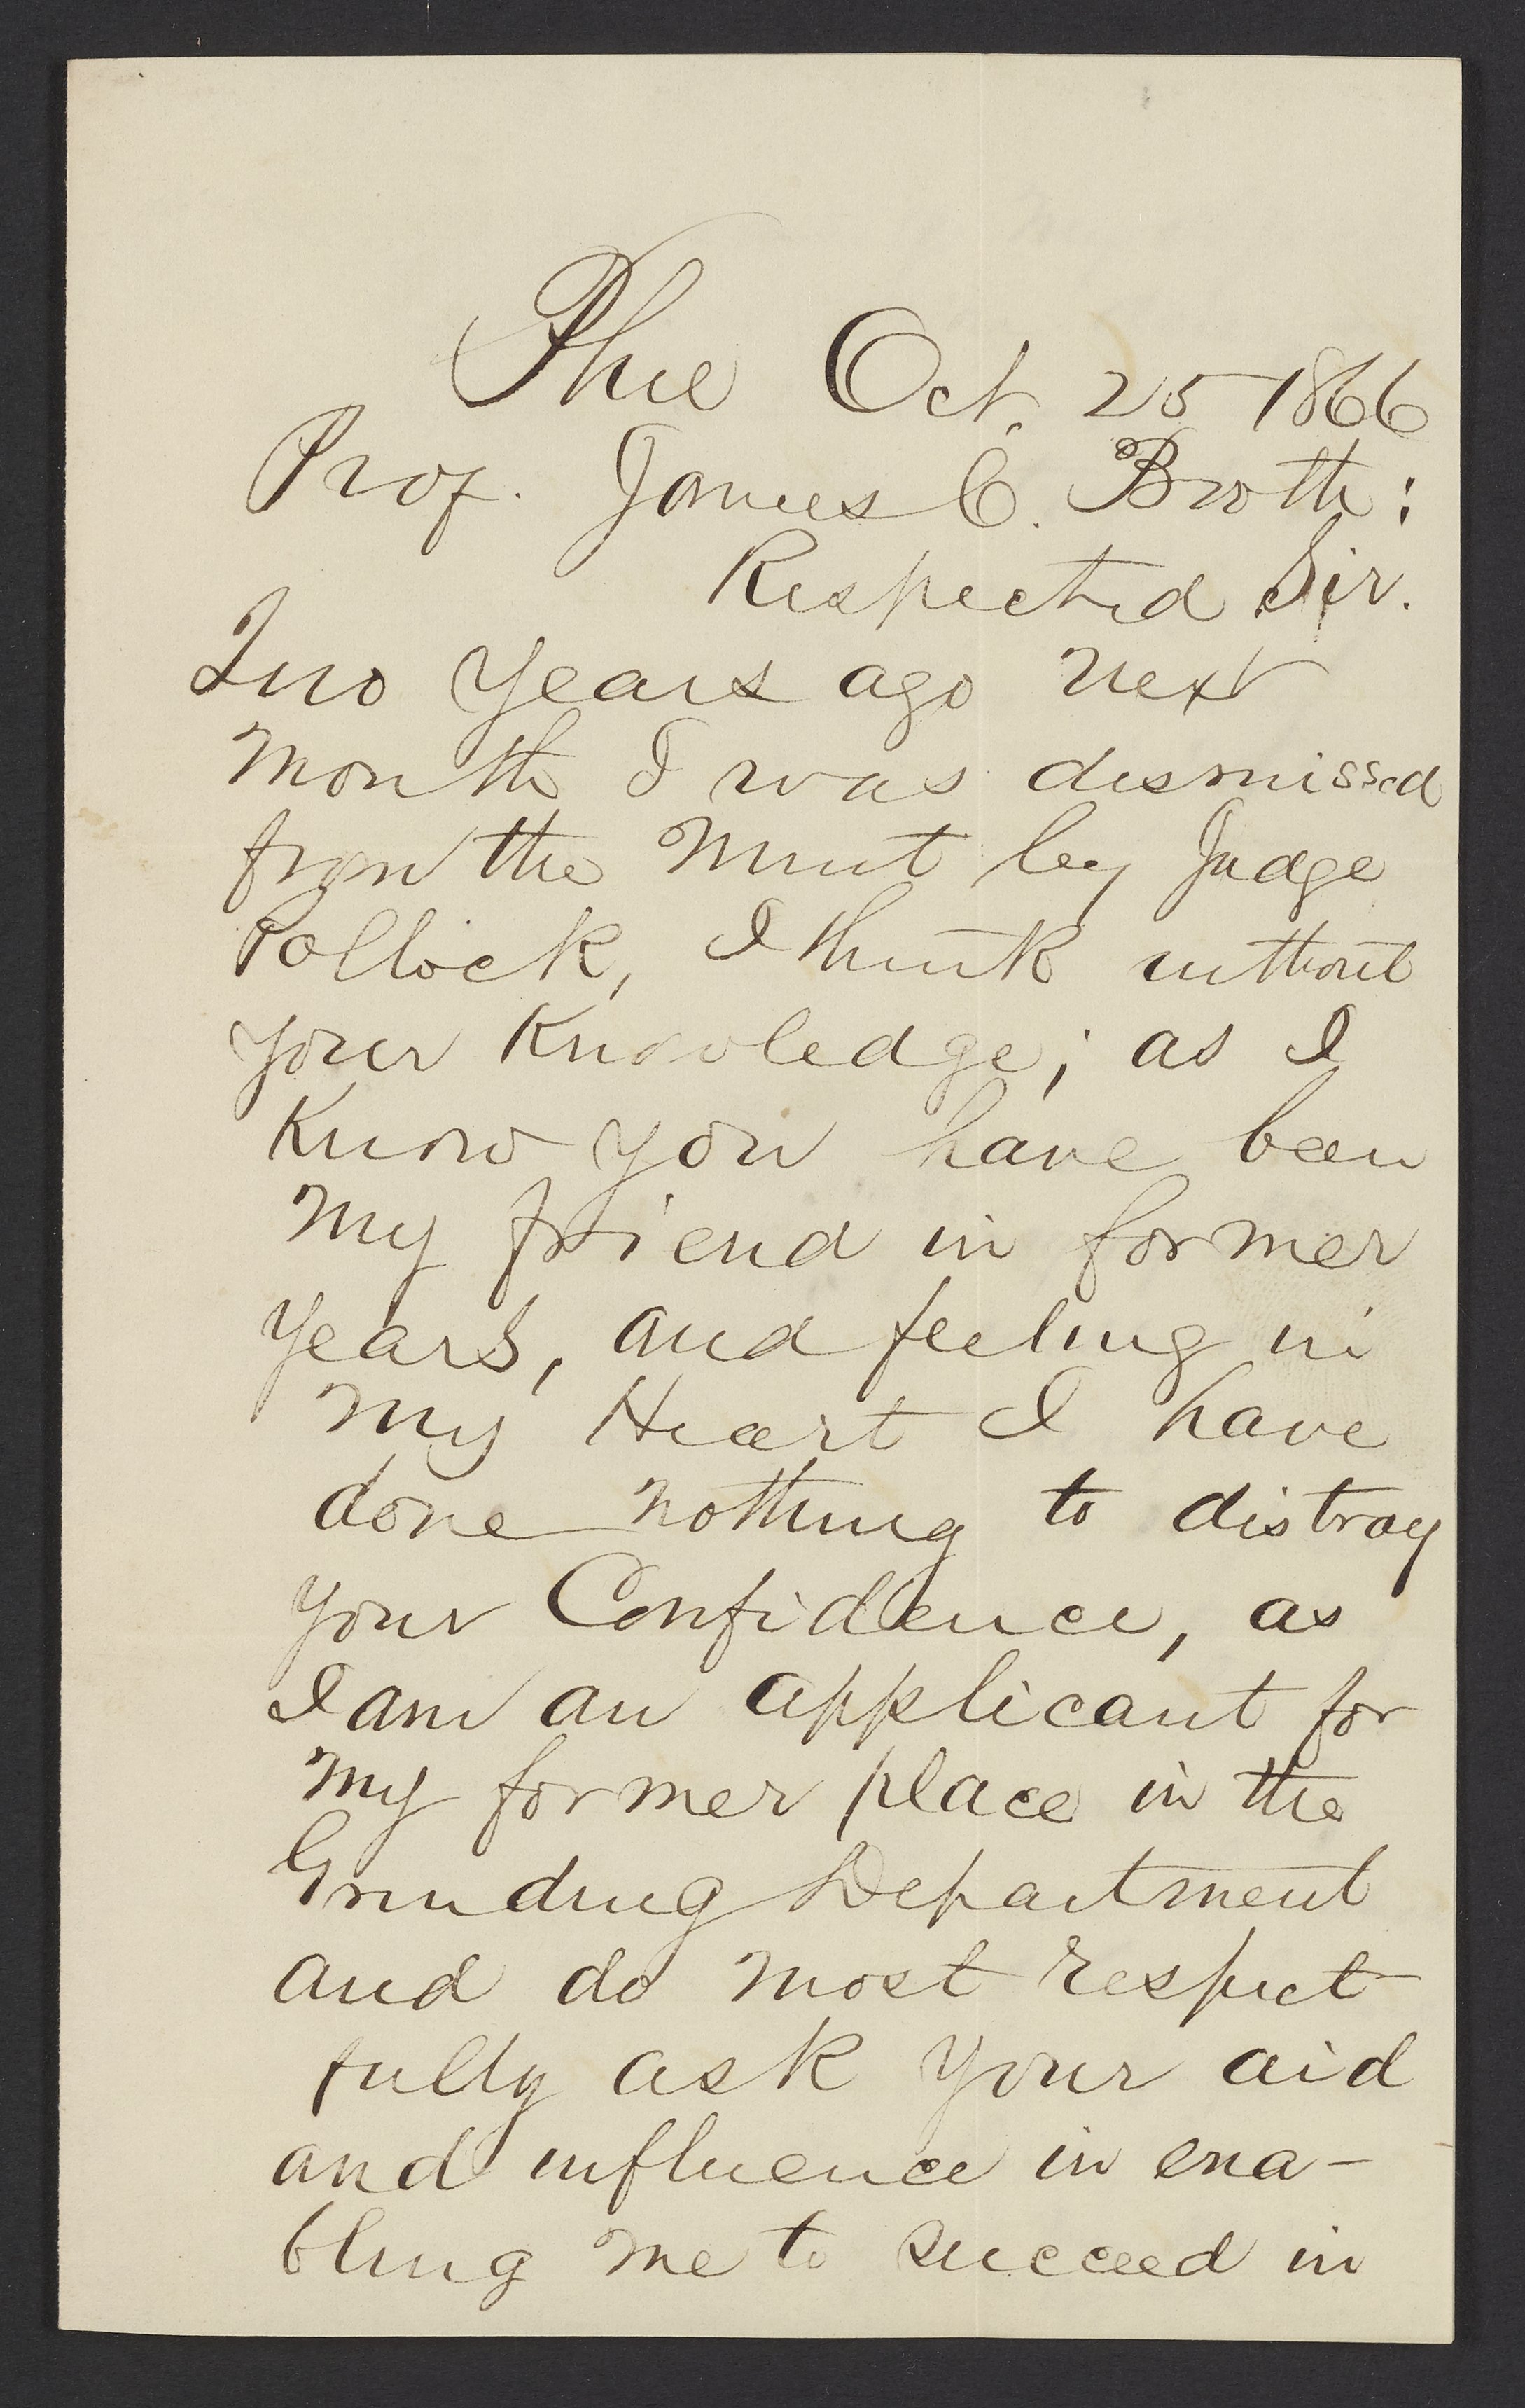 Phil Oct. 25 1866
Prof. James C. Booth:
Respected Sir.
Two years ago next
month I was dismissed
from the Mint by Judge
Pollock, I think without
your Knowledge; as I
Know you have been
my friend in former
years, and feeling in
my Heart I have
done nothing to distroy
your Confidence, as
I am an applicant for
my former place in the
Grinding Department
and do most respect
fully ask your aid
and influence in ena-
bling me to succeed in